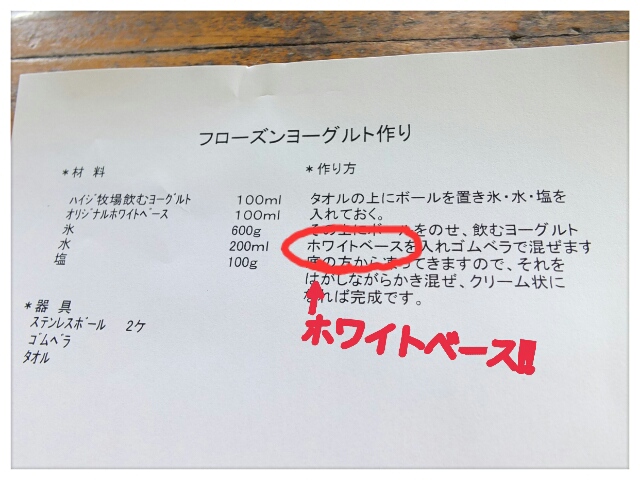 フローズンヨーグルト作り
*材 料
ハイジ牧場飲むヨーグルト 100ml
オリジナルホワイトベース 100ml
氷 600g
水 200ml
塩 100g
*器 具
ステンレスボール 2ケ
ゴムベラ
タオル
*作り方
タオルの上にボールを置き氷・水・塩を
入れておく。
その上にボールをのせ、飲むヨーグルト
ホワイトベースを入れゴムベラで混ぜます
底の方から凍ってきますので、それを
はがしながらかき混ぜ、クリーム状に
なれば完成です。
ホワイトベース!!